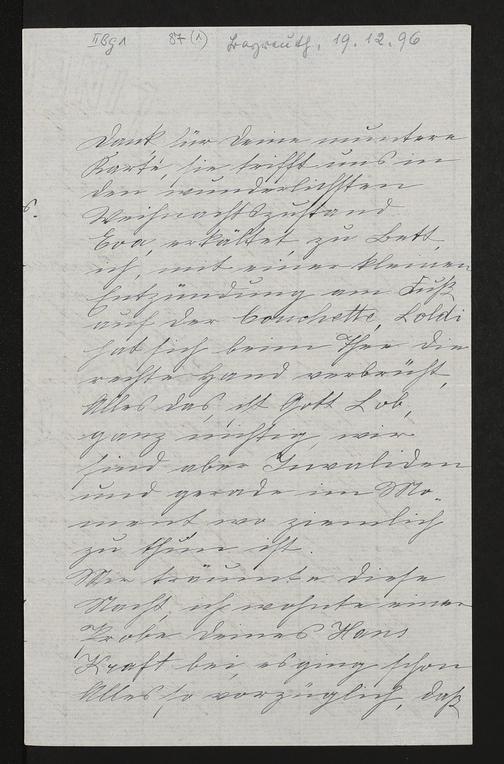 II Bg 1 87 (1) Bayreuth, 19.12.96
Dank für Deine muntere
Karte, sie trifft uns in
den wunderlichsten
Weihnachtszustand.
Eva, erkältet, zu Bett,
ich, mit einer kleinen
Entzündung am Fuß
auf der Couchette, Loldi
hat sich beim Thee die
rechte Hand verbrüht,
Alles das, ist Gott Lob,
ganz nichtig, wir
sind aber Invaliden
und gerade im Mo-
ment wo ziemlich
zu thun ist.
Mir träumte diese
Nacht, ich wohnte einer
Probe Deines Hans
Kraft bei, es ging schon
Alles so vorzüglich, daß